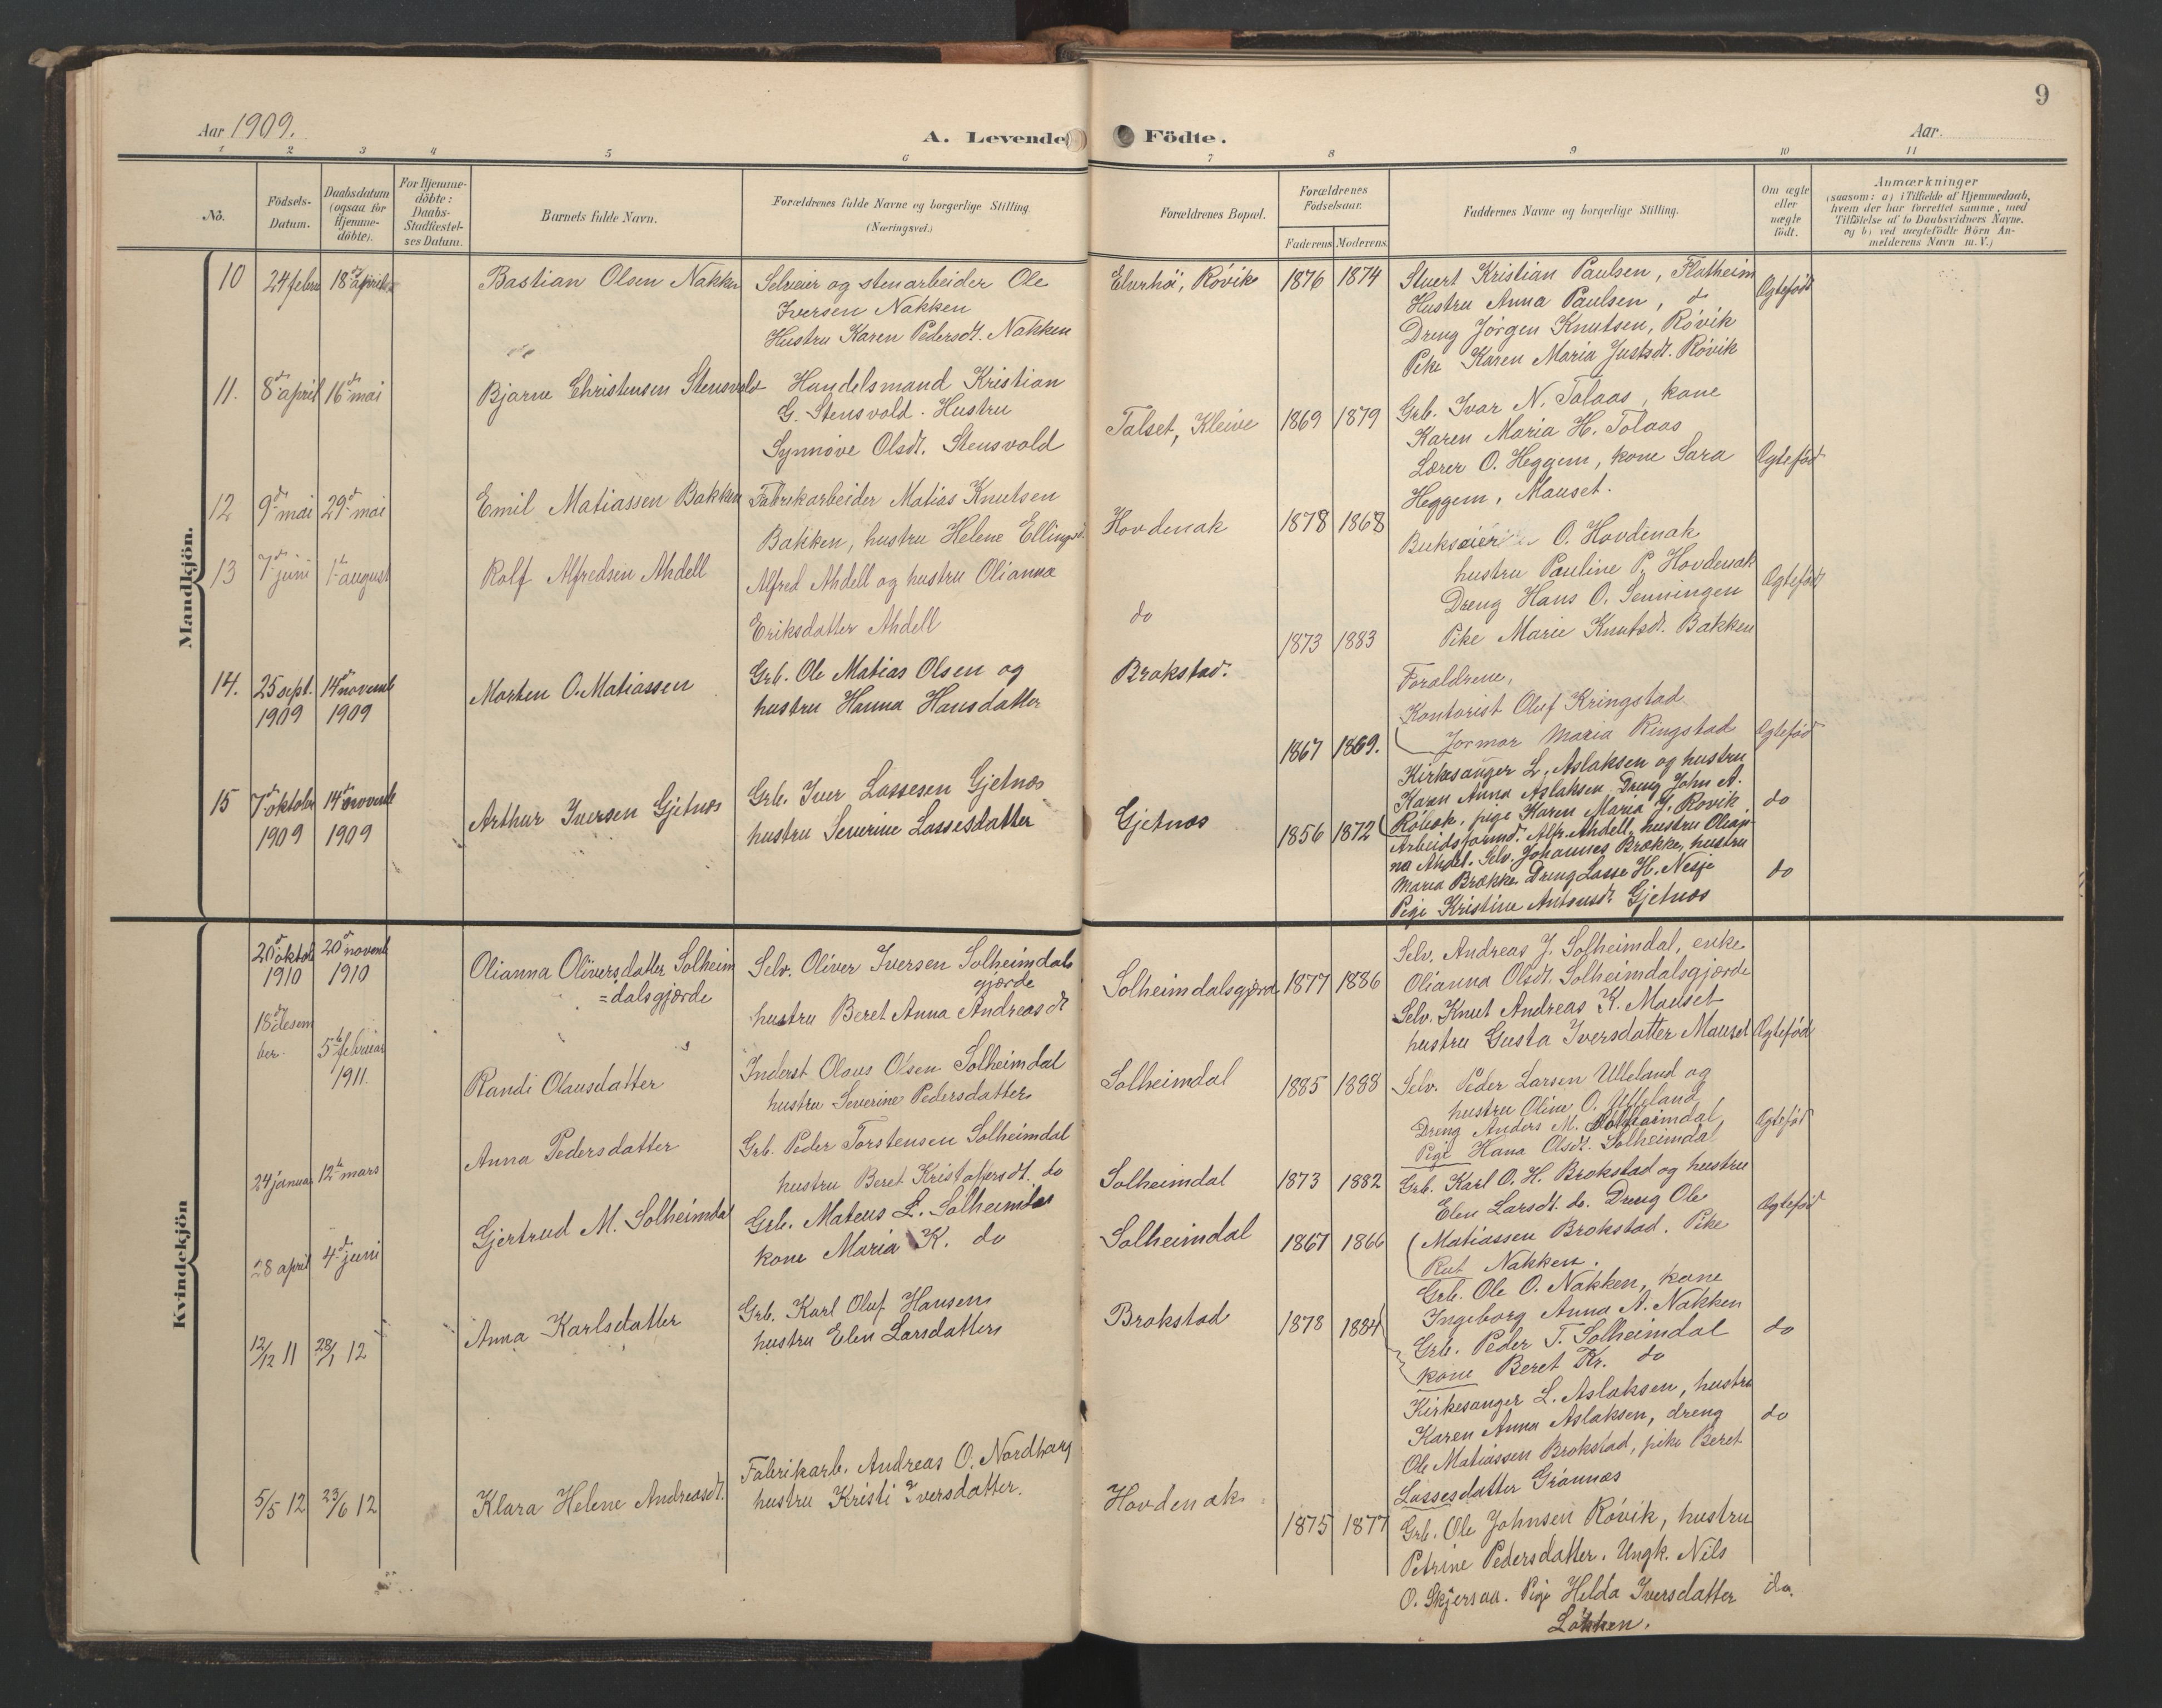 Aar 1909.
A. Levende
1 2 3 4 5 6
No.
Födsels-
Datum.
Daabsdatum
(ogsaa for
Hjemme-
döbte).
For Hjemme-
döbte:
Daabs-
Stadfæstel-
ses Datum.
Barnets fulde Navn.
Forældrenes fulde Navne og borgerlige Stilling
(Næringsvei.)
Mandkjön.
10 24 febru 18d april Bastian Olsen Nakken Selveier og stenarbeider Ole
Iversen Nakken
Hustru Karen Pedersdt. Nakken
11. 8d april 16d mai Bjarne Christensen Stensvold Handelsmand Kristian
G. Stensvold. Hustru
Synnöve Olsdt. Stensvold
12 9d mai 29d mai Emil Matiassen Bakken Fabrikarbeider Matias Knutsen
Bakken, hustru Helene Ellingsd.
13 7d juni 1t august Rolf Alfredsen Ahdell Alfred Ahdell og hustru Olianna
Eriksdatter Ahdell
14. 25 sept. 14d novemb Morten O. Matiassen Grb. Ole Matias Olsen og
1909 1909 hustru Hanna Hansdatter
15 7d oktober 14d novemb Arthur Iversen Gjetnæs Grb. Iver Lassesen Gjetnæs
1909 1909 hustru Severine Lassesdatter
Kvindekjön
20d oktob 20d novemb Olianna Oliversdatter Solheim Selv. Oliver Iversen Solheimdals
1910 1910 =dalsgjærde gjærde
hustru Beret Anna Andreasdt
18d desem
ber. 5te februar
1911. Randi Olausdatter Inderst Olaus Olsen Solheimdal
hustru Severine Pedersdatter
24 januar 12te mars Anna Pedersdatter Grb. Peder Torstensen Solheimdal
hustru Beret Kristofersdt. do
28 april 4d juni Gjertrud M. Solheimdal Grb. Mateus L. Solheimdal
kone Maria K. do
12/12 11 28/1 12 Anna Karlsdatter Grb. Karl Oluf Hansen
hustru Elen Larsdatter
5/5 12 23/6 12 Klara Helene Andreasdt. Fabrikarb. Andreas O. Nordhaug
hustru Kristi Iversdatter.
9
Födte.
Aar.
7 8 9 10 11
Forældrenes Bopæl.
Forældrenes
Födselsaar.
Faderens Moderens
Faddernes Navne og borgerlige Stilling.
Om ægte
eller
uægte
födt.
Anmærkninger
(saasom: a) i Tilfælde af Hjemmedaab,
hvem der har forrettet samme, med
Tilföielse af to Daabsvidners Navne.
og b) ved uægtefödte Börn An-
melderens Navn m. V.)
Elverhöi, Rövik 1876 1874 Stuert Kristian Paulsen, Flatheim Ægtefød
Hustru Anna Paulsen, do
Dreng Jörgen Knutsen, Rövik
Pike Karen Maria Justsdt. Rövik
Talset, Kleive 1869 1879 Grb. Ivar N. Tolaas, kone
Karen Maria H. Tolaas
Lærer O. Heggem, kone Sara Ægtefød
Heggem, Mauset.
Hovdenak 1878 1868 Brukseier O. Hovdenak
hustru Pauline P. Hovdenak
Dreng Hans O. Senningen Ægtefød
Pike Marie Knutsdt. Bakken
do 1873 1883
Forældrene,
Kontorist Oluf Kringstad
Jormor Maria Ringstad Ægtefød
Brokstad. 1867 1869.
Kirkesanger L. Aslaksen og hustru
Karen Anna Aslaksen. Dreng John A.
Röbæk, pige Karen Maria J. Rovik. do
Gjetnæs 1856 1872 Arbeidsformd. Alfr. Ahdell, hustru Olian
na Ahdel. Selv. Johannes Brække, hustru
Maria Brække. Dreng Lasse H. Nesje do
Pige Kristine Antonsdt. Gjetnæs
Solheimdalsgjærd 1877 1886 Selv. Andreas J. Solheimdal, enke
Olianna Olsdt. Solheimdalsgjærde
Selv. Knut Andreas K. Mauset
hustru Gusta Iversdatter Mauset Ægtefød
Solheimdal 1885 1888 Selv. Peder Larsen Ulleland og
hustru Oline O. Ulleland
Dreng Anders M. Solheimdal
Pige Hana Olsdt. Solheimdal Ægtefød
Solheimdal 1873 1882 Grb. Karl O. H. Brokstad og hustru
Elen Larsdt. do. Dreng Ole
Matiassen Brokstad. Pike Ægtefød
Rut Nakken.
Solheimdal 1867 1866 Grb. Ole O. Nakken, kone
Ingeborg Anna A. Nakken
Grb. Peder T. Solheimdal do
kone Beret Kr. do
Brokstad 1878 1884 Kirkesanger L. Aslaksen, hustru
Karen Anna Aslaksen, dreng do
Ole Matiassen Brokstad, pike Beret
Lassesdatter Grännæs
Hovdenak 1875 1877 Grb. Ole Johnsen Rövik, hustru
Petrine Pedersdatter. Ungk. Nils
O. Skjersaa. Pige Helda Iversdatter do.
Lökken.